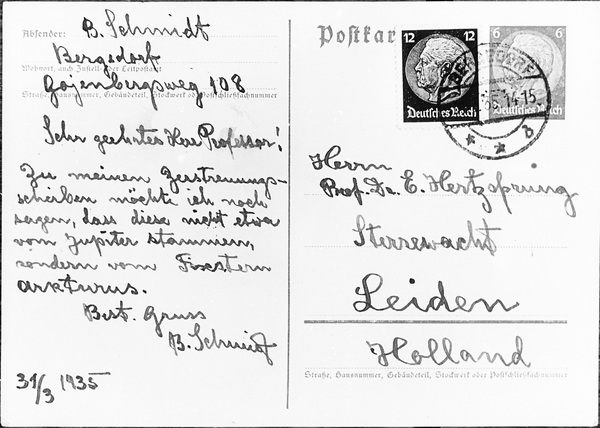 Absender: B. Schmidt
Bergedorf
Wohnort, auch Zustell- oder Leitpostamt
Gojenbergsweg 108
Straße, Hausnummer, Gebäudeteil, Stockwerk oder Postschließfachnummer
Sehr geehrtes Herr Professor!
Zu meinen Zerstreuungs-
scheiben möchte ich noch
sagen, dass diese nicht etwa
vom Jupiter stammen,
sondern vom Fixstern
Arkturus.
Best. Gruss
B. Schmidt
31/3 1935
Postkar
12 12
Deutsches Reich
6 6
Deutsches Reich
14-15
Herrn
Prof. Dr. E. Hertzsprung
Sterrewacht
Leiden
Holland
Straße, Hausnummer, Gebäudeteil, Stockwerk oder Postschließfachnummer